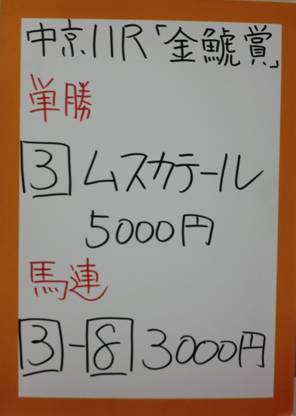 中京11R「金鯱賞」
単勝
3 ムスカテール
5000円
馬連
3-8 3000円